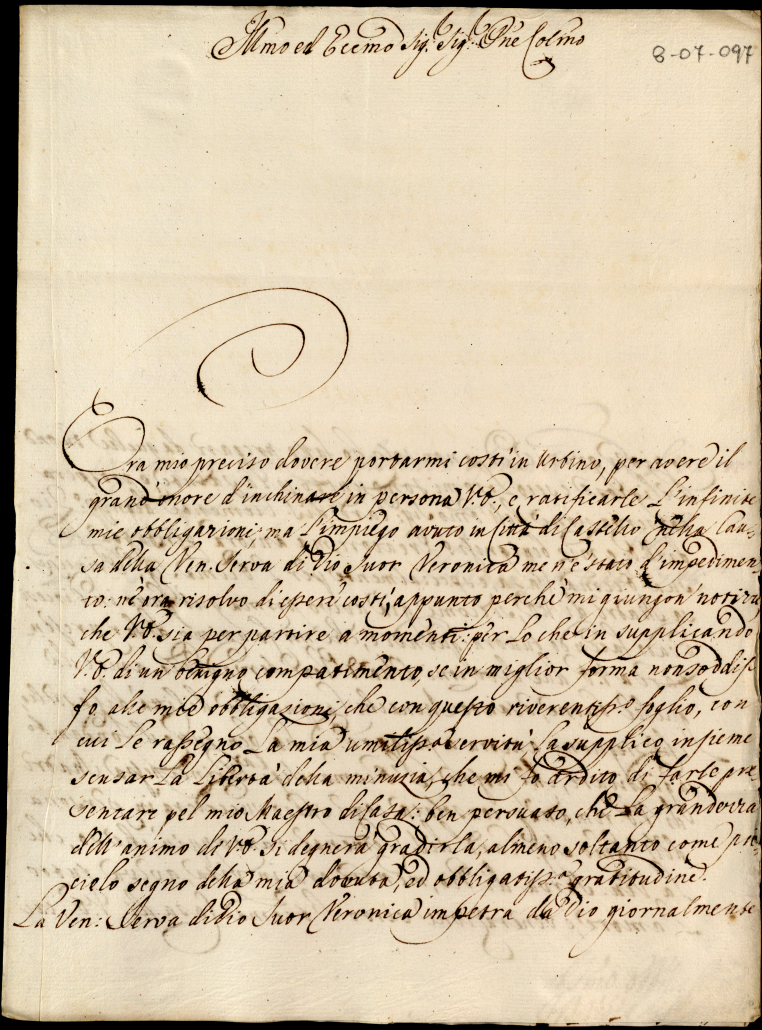 Illmo ed Eccmo Sig. Sig. Pne Colmo
8-07-097
Era mio preciso dovere portarmi costì in Urbino, per avere il
grand'onore d'inchinare in persona V.E., e ratificarle l'infinite
mie obbligazioni; ma l'impiego avuto in Città di Castello nella Cau-
sa della Ven. Serva di Dio Suor Veronica me n'è stato d'impedimen-
to: nè ora risolvo di essere costì, appunto perchè mi giungon' notizie
che V.E. sia per partire a momenti: per lo che in supplicando
V.E. di un benigno compatimento, se in miglior forma non soddisf-
fo alle mie obbligazioni, che con questo riverentiss.o foglio, con
cui le rassegno la mia umiliss.a servitù la supplico insieme
scusar la libertà della minuzia, che mi fo ardito di farle pre
sentare pel mio Maestro di Casa: ben persuaso, che la grandezza
dell'animo di V.E. si degnerà gradirla, almeno soltanto come pic-
ciolo segno della mia dovuta, ed obbligatiss.a gratitudine.
La Ven: Serva di Dio Suor Veronica impetra da Dio giornalmente